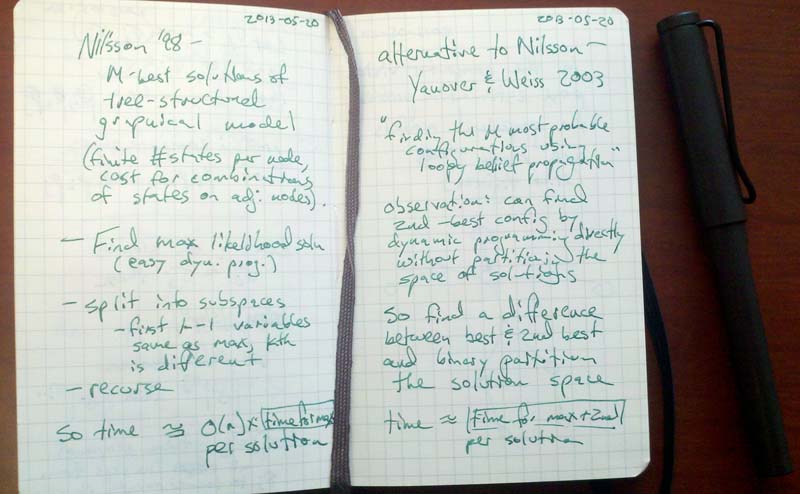 2013-05-20
Nilsson '98 –
M-best solutions of
tree-structured
graphical model
(finite # states per node,
cost for combinations
of states on adj. nodes).
– Find max likelihood soln
(easy dyn. prog.)
– split into subspaces
– first k-1 variables
same as max, kth
is different
– recurse
so time ≅ O(n) × time for max
per solution
2013-05-20
alternative to Nilsson –
Yanover & Weiss 2003
"finding the M most probable
configurations using
loopy belief propagation"
observation: can find
2nd-best config by
dynamic programming directly
without partitioning the
space of solutions
So find a difference
between best & 2nd best
and binary partition
the solution space
time ≈ time for max + 2nd
per solution